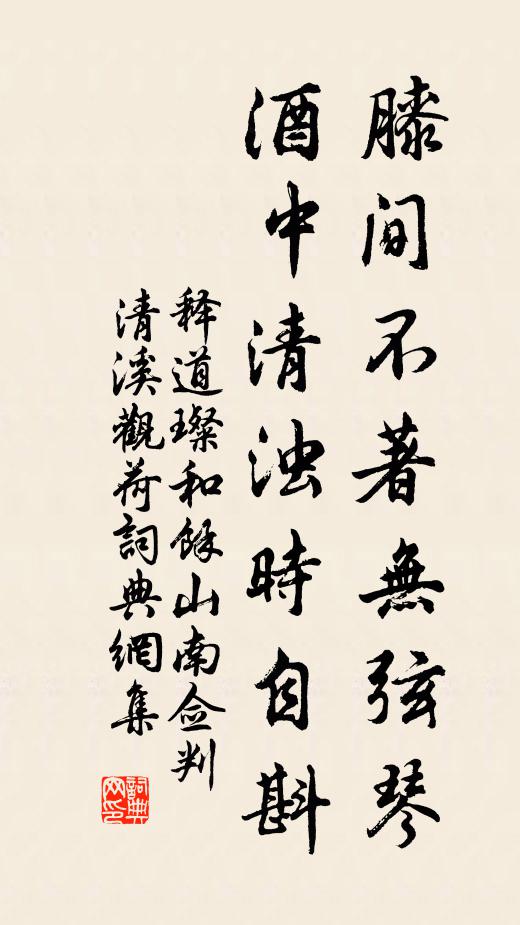 膝间不著無弦琴
酒中清浊時自斟
释道璨和餘山南佥判
清溪觀荷詞典網集
詞典網印